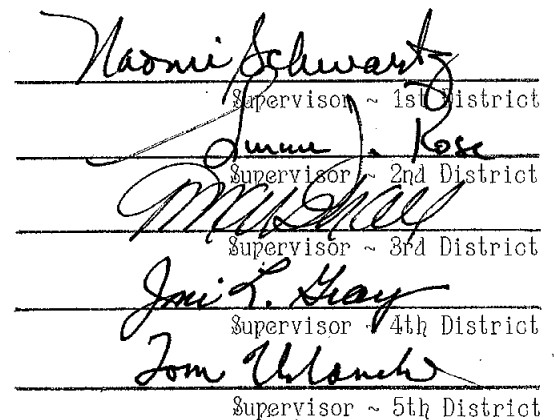 Naomi Schwartz
Supervisor ~ 1st District
J. Rose
Supervisor ~ 2nd District
Marshall
Supervisor ~ 3rd District
Joni L. Gray
Supervisor ~ 4th District
Tom Urbanske
Supervisor ~ 5th District